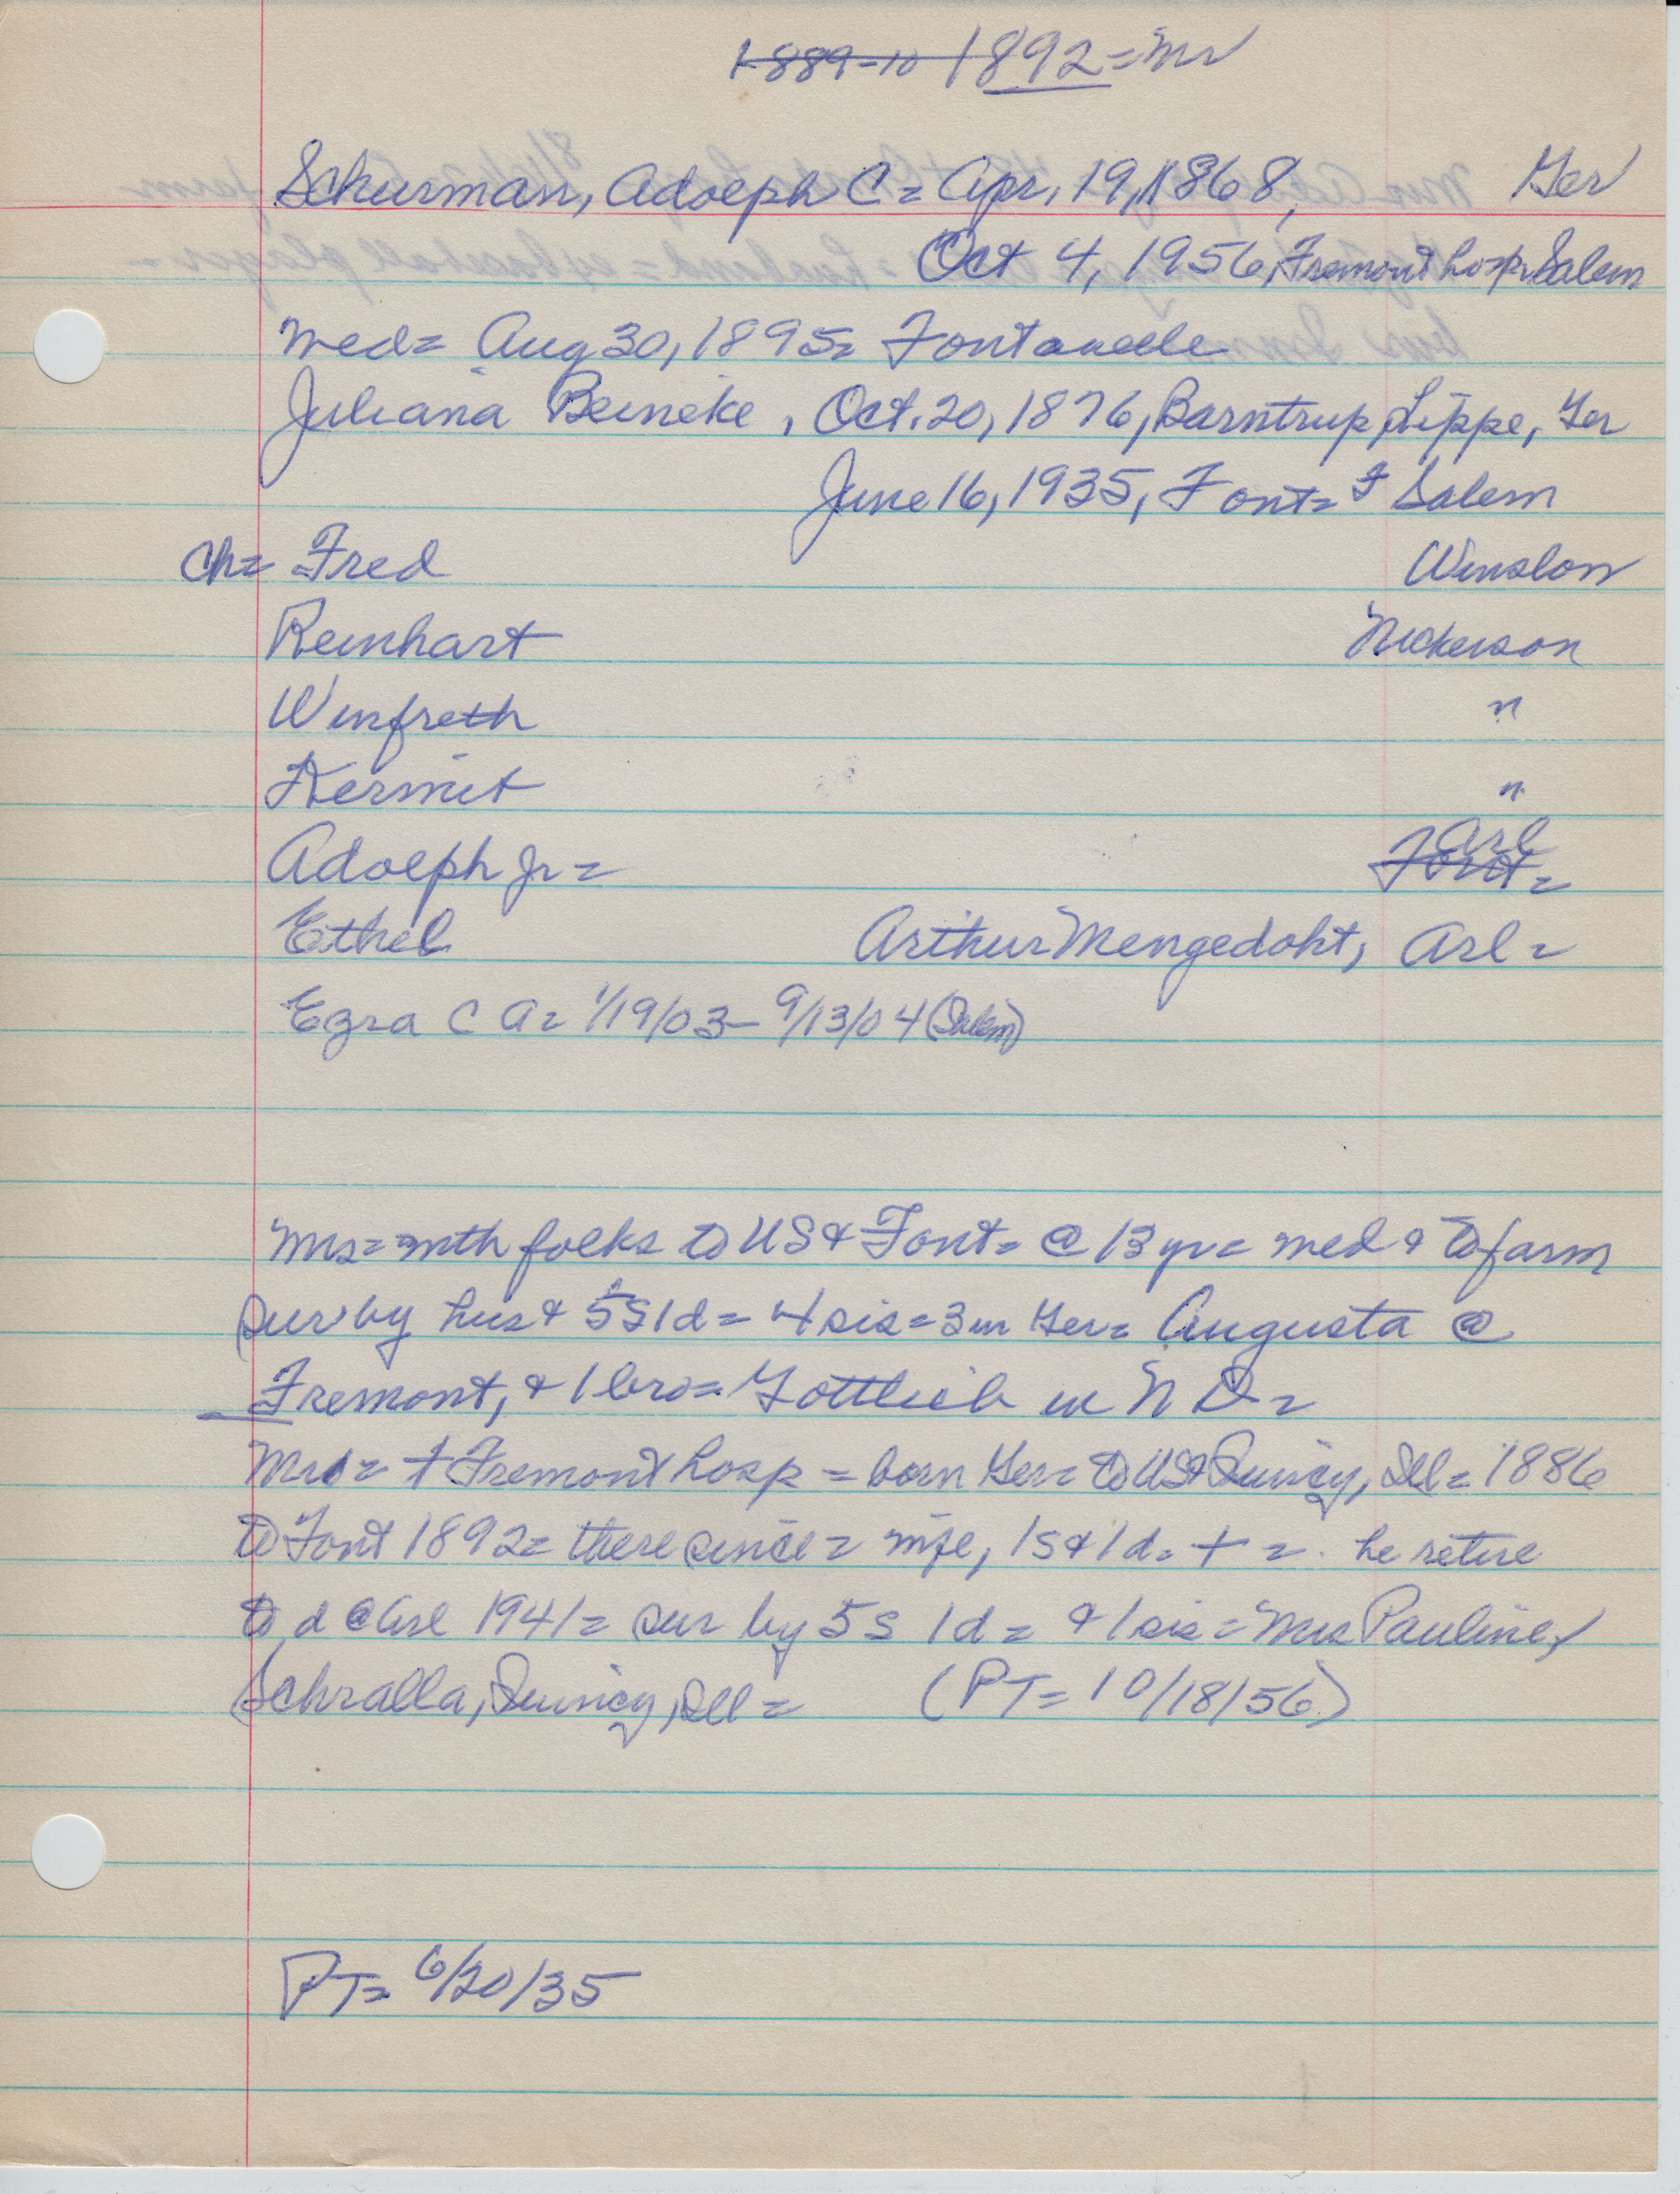 1889-10 1892 = Mr
Schurman, Adolph C = Apr. 19, 1868, Ger
Oct 4, 1956, Fremont hosp, Salem
med = Aug 30, 1895 = Fontanelle
Juliana Beineke, Oct. 20, 1876, Barntrup, Lippe, Ger
June 16, 1935, Font = Salem
Ch = Fred Winslow
Reinhart Nickerson
Winfreth "
Kermit "
Adolph Jr = Font = Arl
Ethel Arthur Mengedoht, Arl =
Ezra C A = 1/19/03 - 9/13/04 (Salem)
Mrs = with folks to US & Font = @ 13 yr = med & to farm
sur by hus & 5s 1d = 4 sis = 3 in Ger = Augusta @
Fremont, & 1 bro = Gottlieb in N D =
= + Fremont hosp = born Ger = to US & Quincy, Ill = 1886
to Font 1892 = there since = wife, 1s & 1d = + = he retire
to d @ Arl 1941 = sur by 5s 1d = & 1 sis = Mrs Pauline
Schralla, Quincy, Ill = (PT = 10/18/56)
PT = 6/20/35